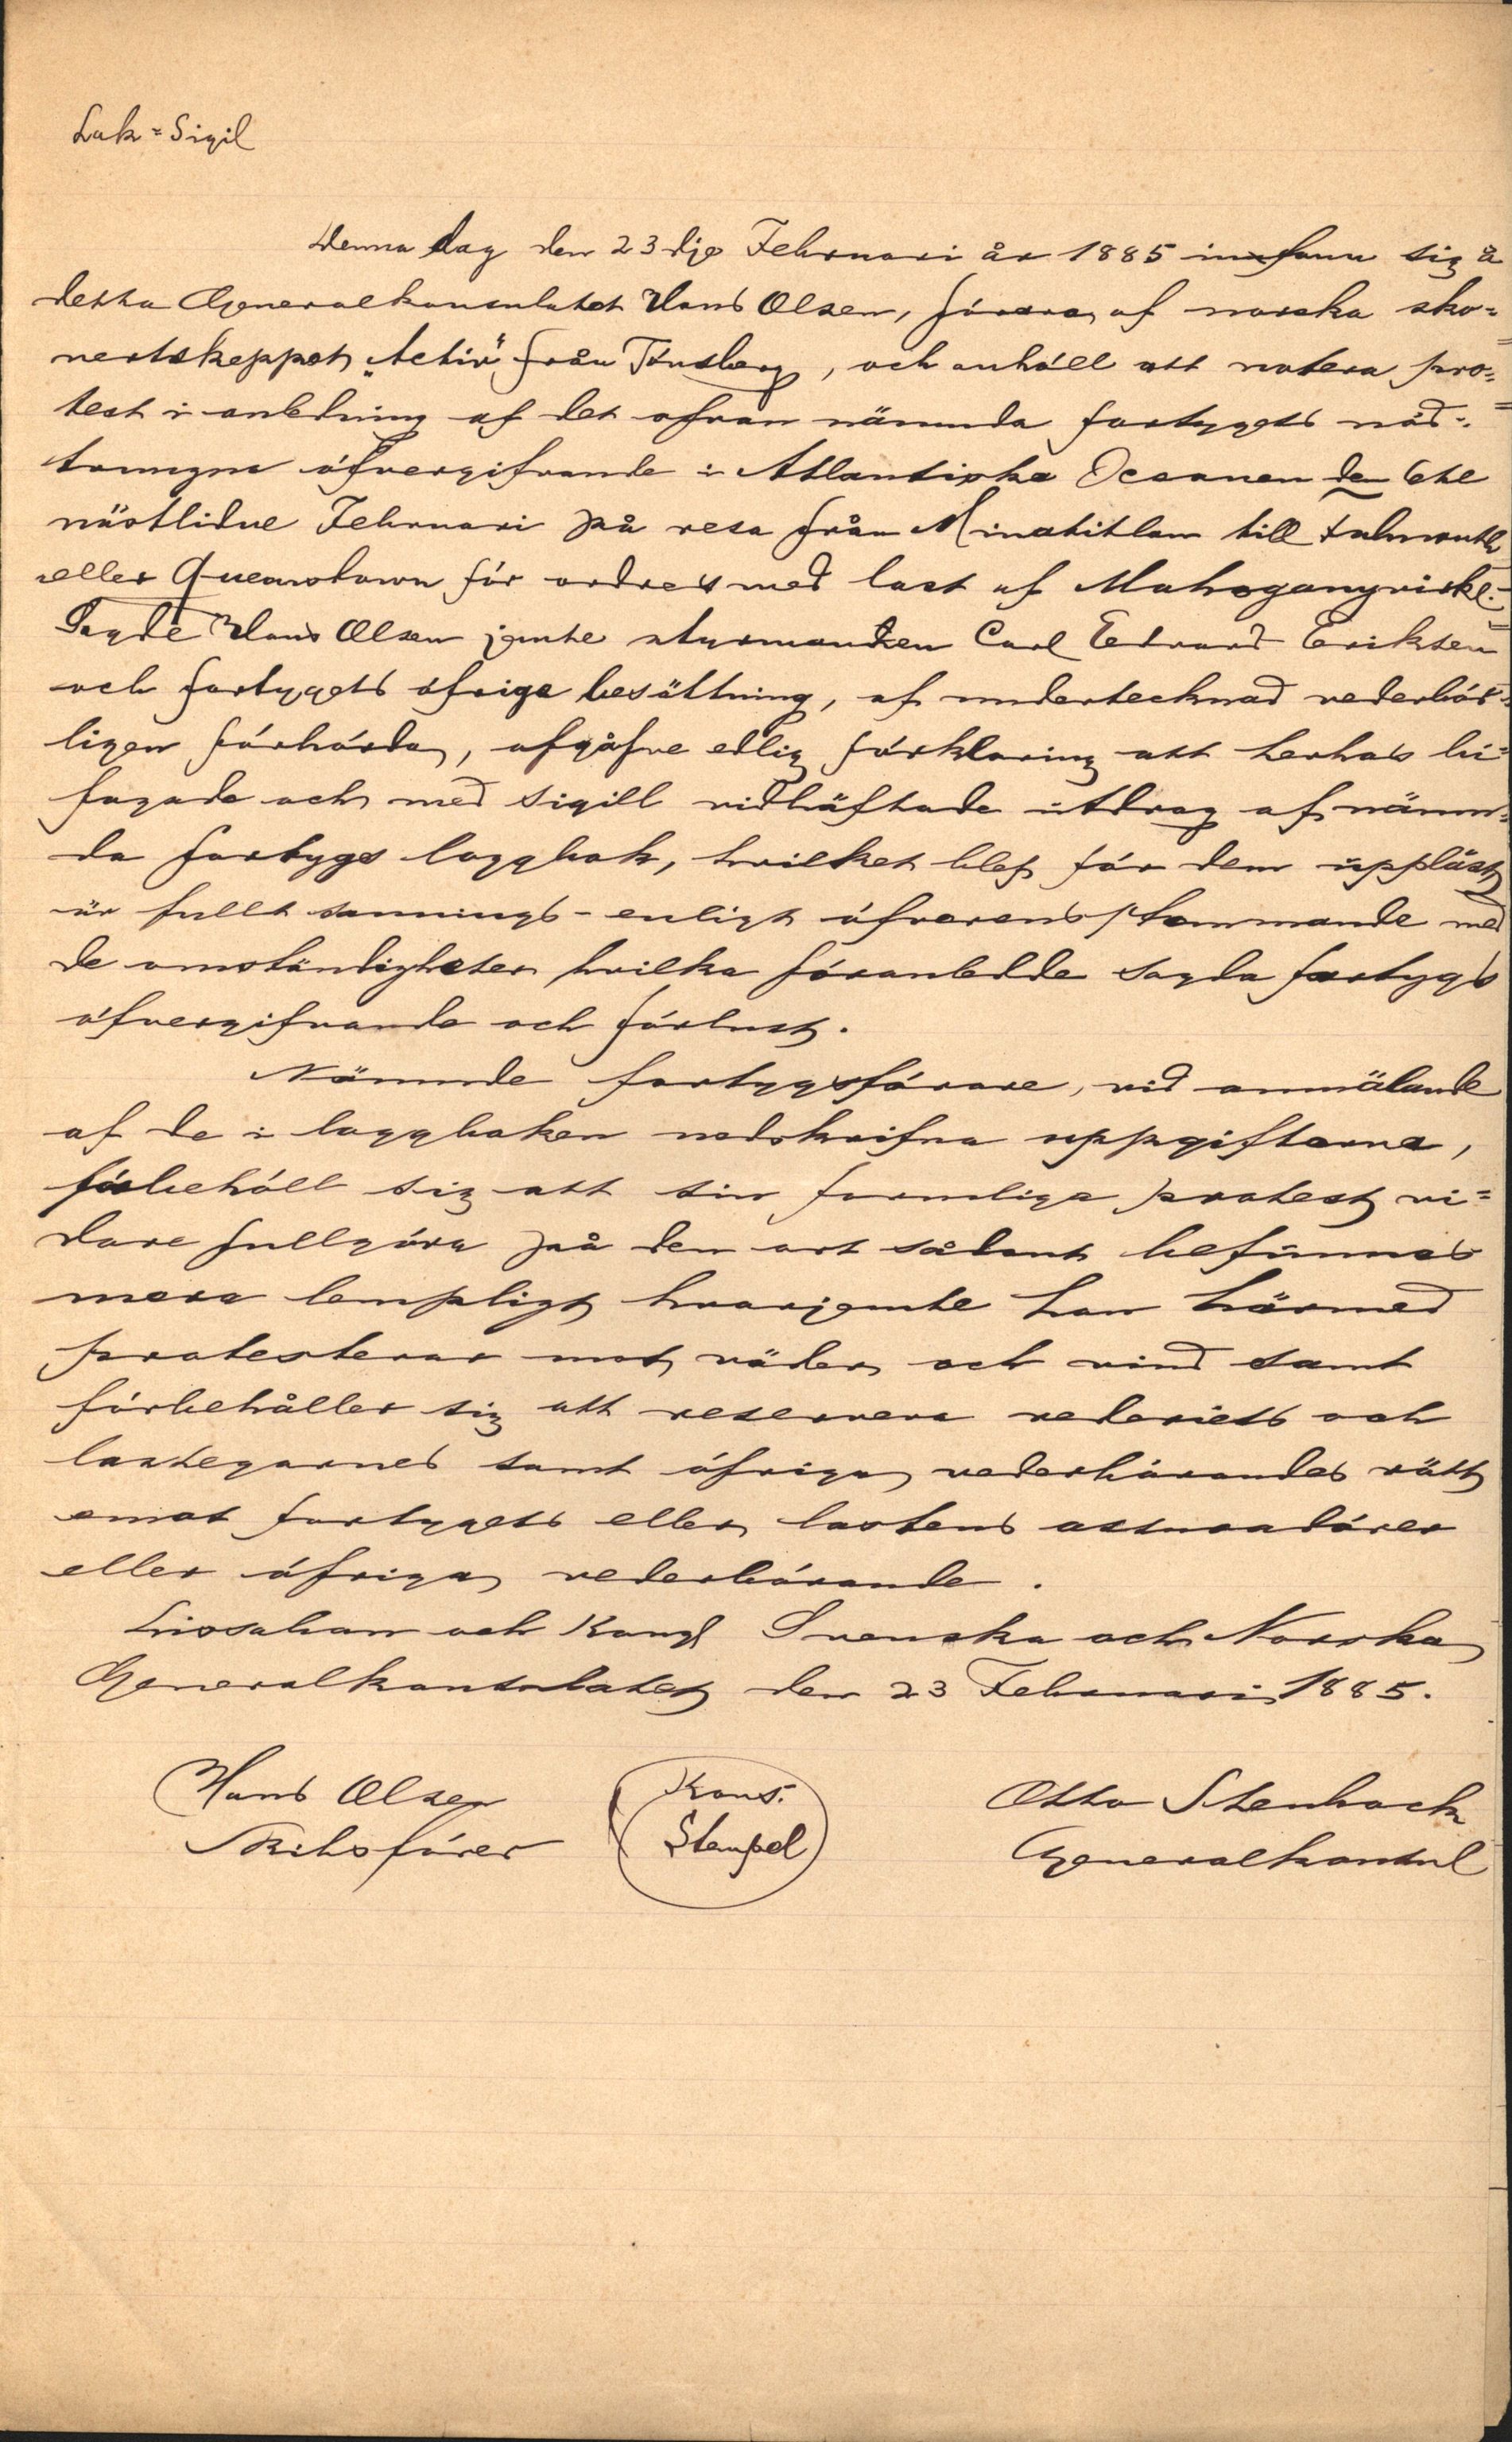 Lak=Sigil
Denna dag den 23dje Februari år 1885 infann sig å
detta Generalkonsulatet Hans Olsen, förare af norska sko=
nertskeppet "Activ" från Tønsberg, och anhöll att notera pro=
test i anledning af det ofvan nämnda fartygets nöd=
tvungna öfvergifvande i Atlantiska Oceanen den 6te
nästlidne Februari på resa från Minatitlan till Falmouth
eller Queenstown för ordres med last af Mahogany
Sagde Hans Olsen jemte styrmannen Carl Edvard Eriksen
och fartygets öfriga besättning, af undertecknad vederbör=
ligen förhörda, afgåfve edlig förklaring att herhos bi=
fogade och med sigill vidhäftade utdrag af nämn=
da fartygs loggbok, hvilket blef för dem uppläst
är fullt sannings-enligt öfverensstemmande med
de omständigheter hvilka föranledde sagda fartygs
öfvergifvande och förlust.
Nämnde fartygsförare, vid anmälande
af de i loggboken nedskrifna uppgifterna,
förbehöll sig att sin formliga protest vi=
dare fullgöra på den ort sådant befinnes
mera lempligt hvarjemte han härmed
protesterar mot väder och vind samt
förbehåller sig att reservera rederiets och
lastegarnes samt öfriga vederbörandes rätt
emot fartygets eller lastens assuradörer
eller öfriga vederbörande.
Lissabon och Kongl Svenska och Norska
Generalkonsulatet den 23 Februari 1885.
Hans Olsen Kons. Otto Stenbock
Skibsförer Stempel Generalkonsul